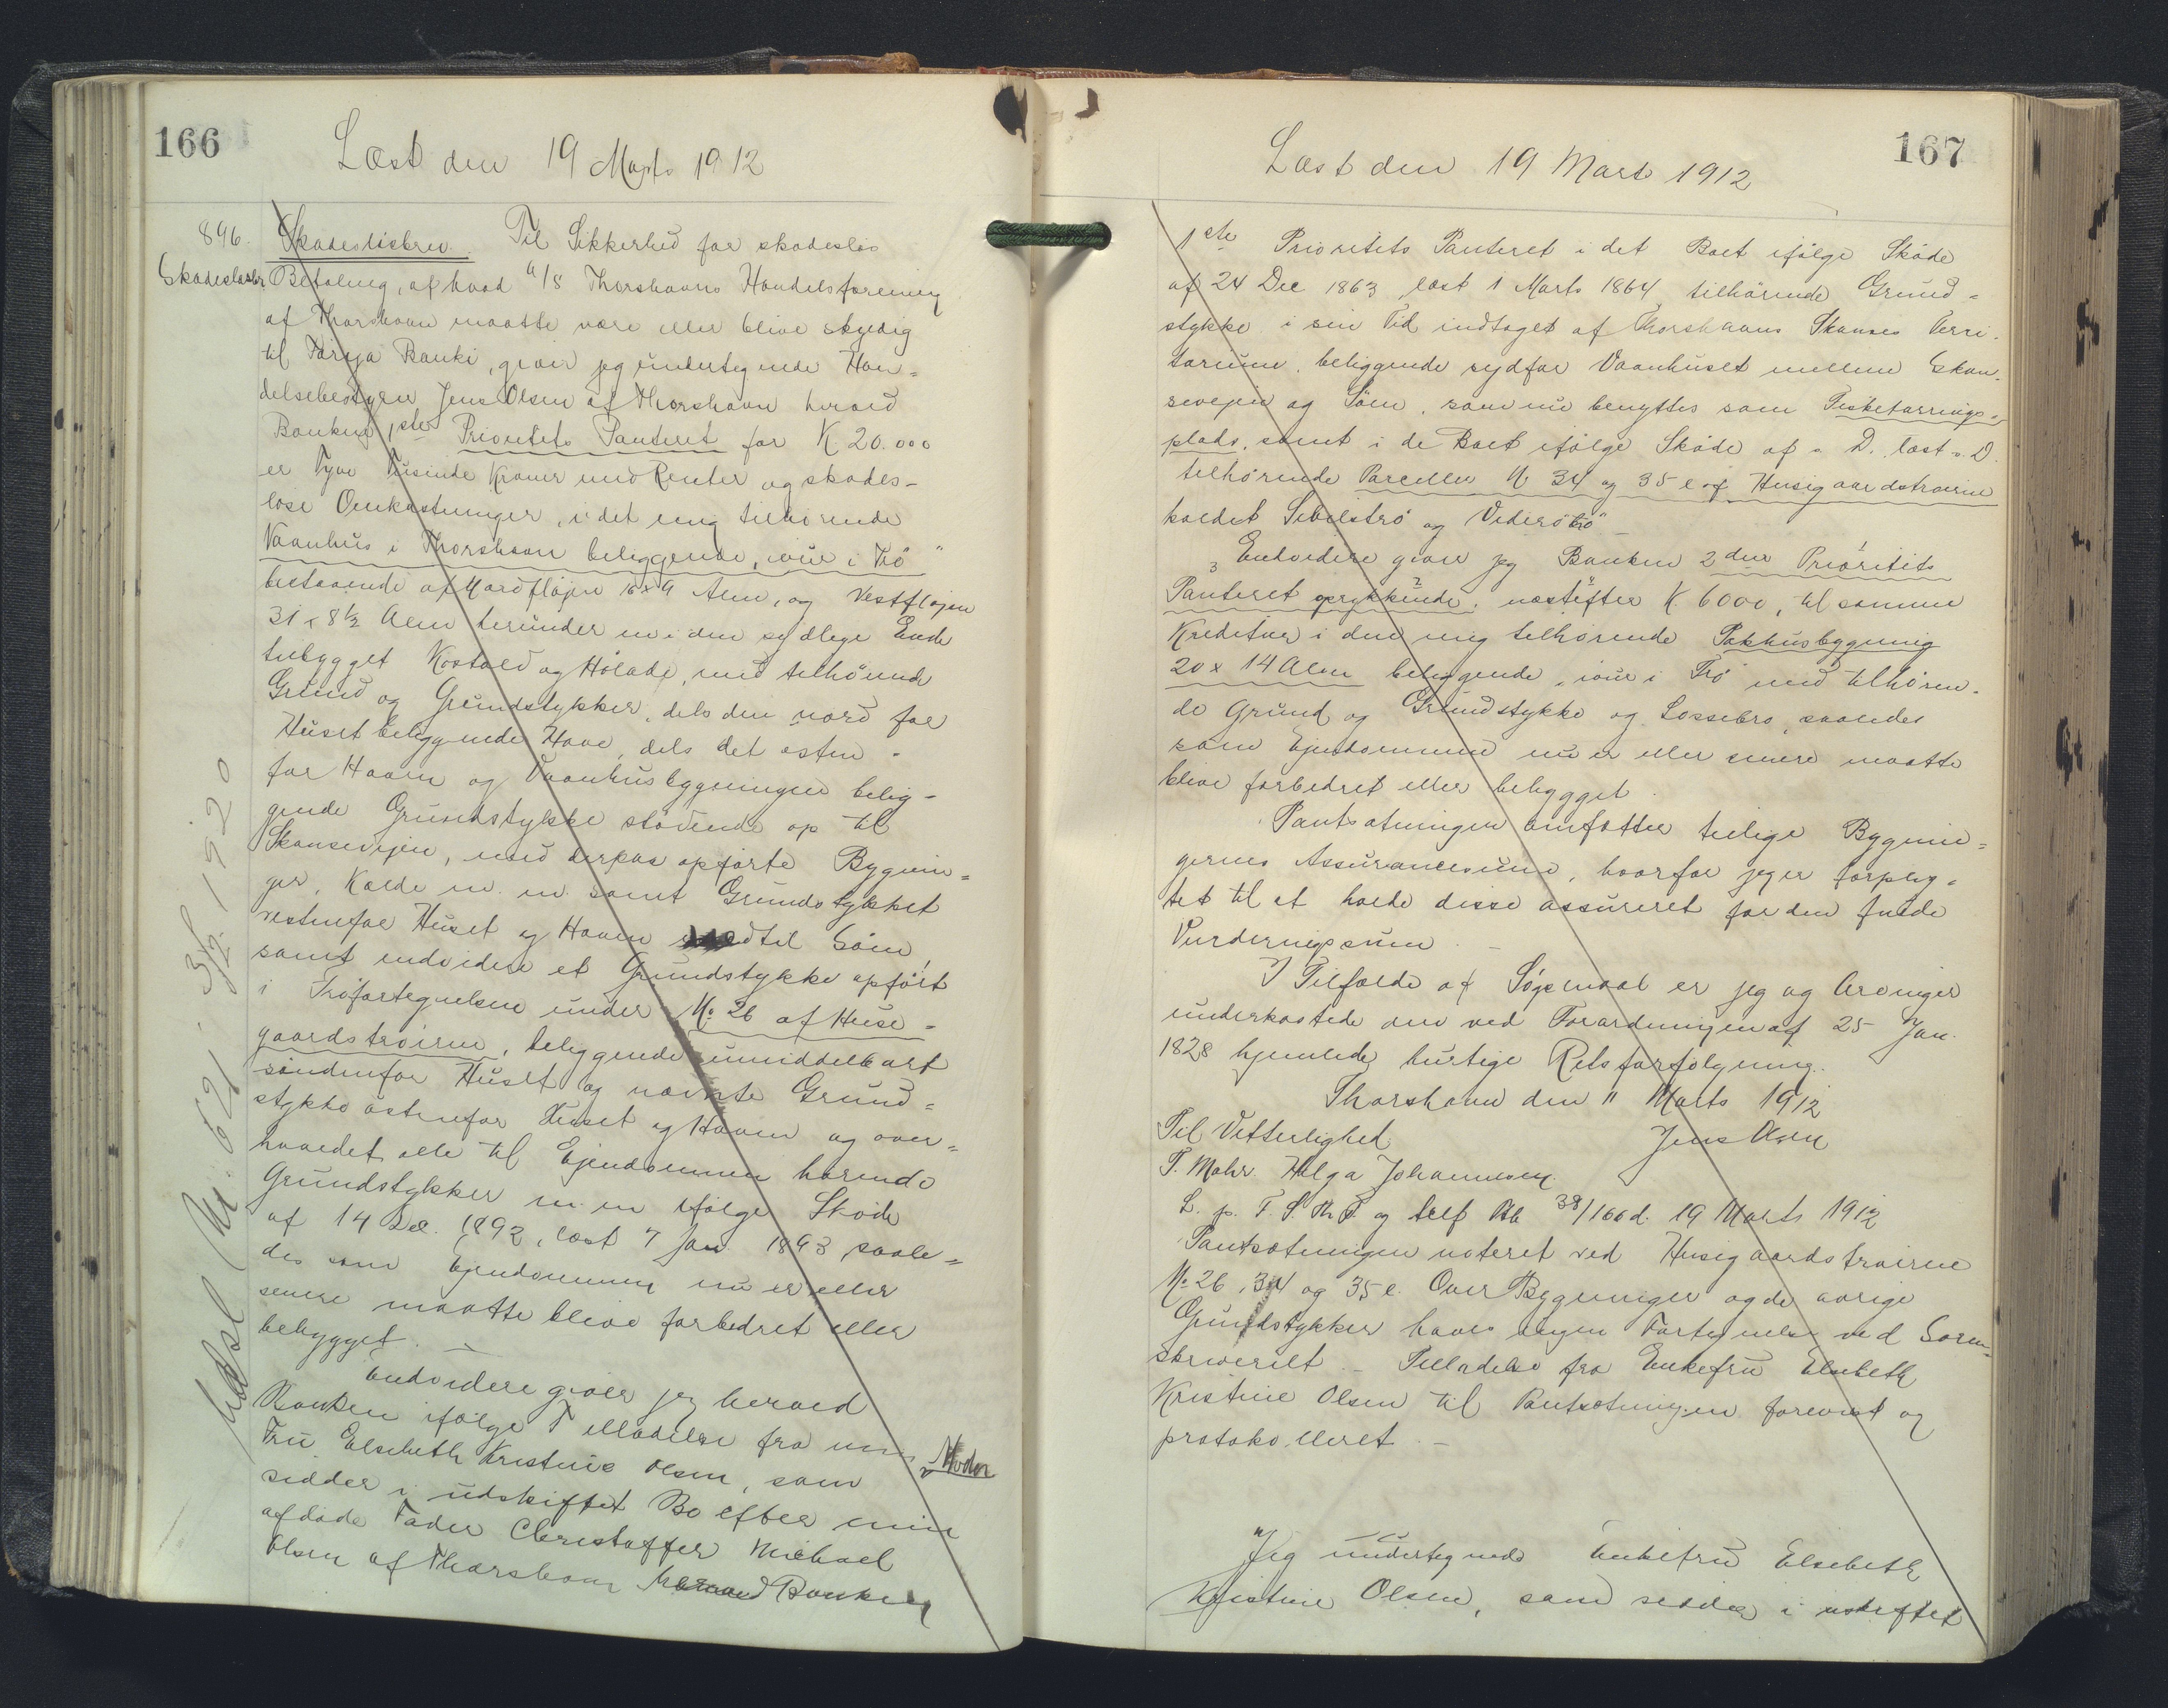 166
Læst den 19 Marts 1912
896.
Skadesløsbr
Skadesløsbrev. Til Sikkerhed for skadesløs
Betaling, af hvad A/S Thorshavns Handelsforening
af Thorshavn maatte være eller blive skyldig
til Førja Banki, giver jeg undertegnede Han=
delsbestyrer Jens Olsen af Thorshavn herved
Banken 1ste Prioritets Panteret for K 20.000
er Tyve Tusinde Kroner med Renter og skades-
løse Omkostninger, i det mig tilhørende
Vaanhus i Thorshavn beliggende "inie i Trø"
bestaaende af Nordfløjen 16x9 Alen, og Vestfløjen
31 x 8½ Alen herunder en i den sydlige Ende
tilbygget Kostald og Hølade, med tilhørende
Grund og Grundstykker, dels den nord for
Huset beliggende Have, dels det østen-
for Haven og Vaanhusbygningen belig-
gende Grundstykke stødende op til
Skansevejen, med derpaa opførte Bygnin=
ger, Kælde m.m. samt Grundstykket
vestenfor Huset og Haven ned til Søen,
samt endvidere et Grundstykke opført
i Trøfortegnelsen under No 26 af Huse=
gaardstrøirne, beliggende umiddelbart
søndenfor Huset og nævnte Grund=
stykke østenfor Huset og Haven og over=
hovedet alle til Ejendommen hørende
Grundstykker m.m ifølge Skøde
af 14 Dec. 1892, læst 7 Jan. 1893 saale=
des som Ejendommen nu er eller
senere maatte blive forbedret eller
bebygget. —
Endvidere giver jeg herved
Banken ifølge Tilladelse fra min Moder
Fru Elsebeth Kristine Olsen, som
sidder i uskiftet Bo efter min
afdøde Fader Christoffer Michael
Olsen af Thorshavn herved Banken
167
Læst den 19 Marts 1912
1ste Prioritets Panteret i det Boet ifølge Skøde
af 24 Dec 1863, læst 1 Marts 1864, tilhørende Grund=
stykke i sin Tid indtaget af Thorshavns Skanses Terri-
torium, beliggende sydfor Vaanhuset mellem Skan-
sevejen og Søen, som nu benyttes som Fisketørrings=
plads, samt i de Boet ifølge Skøde af s. D. læst s. D.
tilhørende Parceller No 34 og 35 e af Husegaardstrøirne
kaldet Sibilstrø og Viderøtrø —
Endvidere giver jeg Banken 2den Prioritets
Panteret oprykkende, næstefter K 6000, til samme
Kreditor i den mig tilhørende Pakhusbygning
20 x 14 Alen beliggende "inie i Trø" med tilhøren-
de Grund og Grundstykke og Lossebro, saaledes
som Ejendommen nu er eller senere maatte
blive forbedret eller bebygget.
Pantsætningen omfatter tillige Bygnin=
gernes Assurancesum, hvorfor jeg er forplig=
tet til at holde disse assureret for den fulde
Vurderingssum —
I Tilfælde af Søgsmaal er jeg og Arvinger
underkastede den ved Forordningen af 25 Jan.
1828 hjemlede hurtige Retsforfølgning.
Thorshavn den 11 Marts 1912
Til Vitterlighed Jens Olsen
T. Mohr. Helga Johannesen
L. p. T. S. Th.R. og
19 Marts 1912
Pantsætningen noteret ved Husegaardstrøirne
No 26, 34 og 35 e. Over Bygninger og de øvrige
Grundstykker haves ingen Fortegnelse ved Soren=
skriveriet — Tilladelse fra Enkefru Elsebeth
Kristine Olsen til Pantsætningen forevist og
protokolleret —
"Jeg undertegnede Enkefru Elsebeth
Kristine Olsen, som sidder i uskiftet